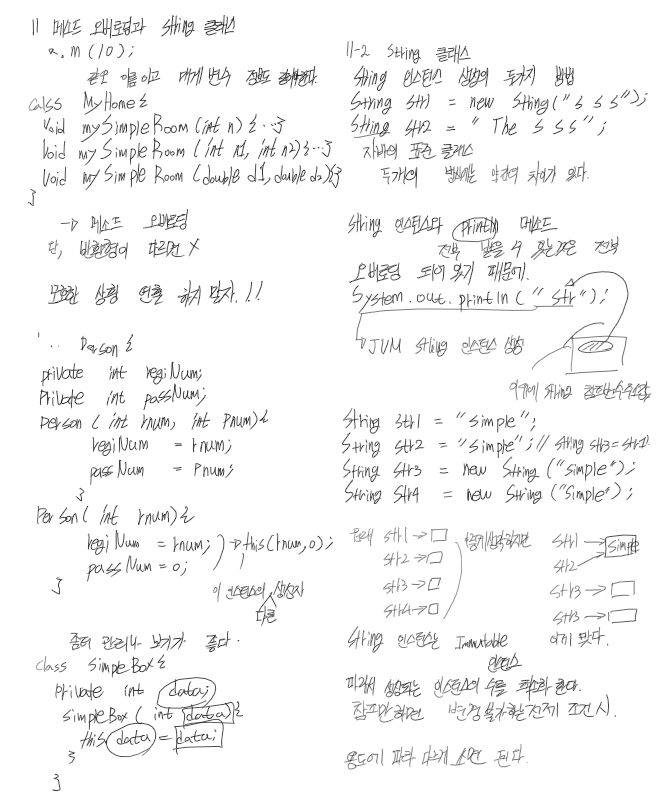 11 메소드 오버로딩과 String 클래스
a.m(10);
같은 이름이고 매개변수 정보
calss MyHome{
void mySimpleRoom (int n) {...}
void mySimpleRoom (int n1, int n2) {...}
void mySimpleRoom (double d1, double d2) {}
}
→ 메소드 오버로딩
단, 반환형이 다르면 X
모호한 상황 연출 하지 말자.!!
... Person {
private int regiNum;
private int passNum;
Person ( int rnum, int pnum){
regiNum = rnum;
passNum = pnum;
}
Person( int rnum){
regiNum = rnum; → this(rnum,0);
passNum = 0;
}
이 인스턴스의 생성자
다른
좀더 관리나 보기가 좋다.
class SimpleBox{
private int data;
SimpleBox ( int data){
this data = data;
}
}
11-2 String 클래스
String 인스턴스 생성의 두가지 방법
String str1 = new String("s s s");
String str2 = "The s s s";
자바의 표준 클래스
두개의 방법에는 약간의 차이가 있다.
String 인스턴스와 println 메소드
전부 받을 수 있는것은 전부
오버로딩 되어 있기 때문에.
System.out.println("str");
→ JVM String 인스턴스 생성
여기에 String 참조변수
String str1 = "simple";
String str2 = "simple"; // String str3=str1.
String str3 = new String ("simple");
String str4 = new String ("simple");
원래 str1 →
str2 →
str3 →
str4 →
str1 → simple
str2
str3 →
str3 →
String 인스턴스는 Immutable 이게 맞다.
인스턴스
따라서 생성되는 인스턴스의 수를 최소화 한다.
참조만하면 변경불가하는전제 조건시.
용도에 따라 다르게 소멸 된다.